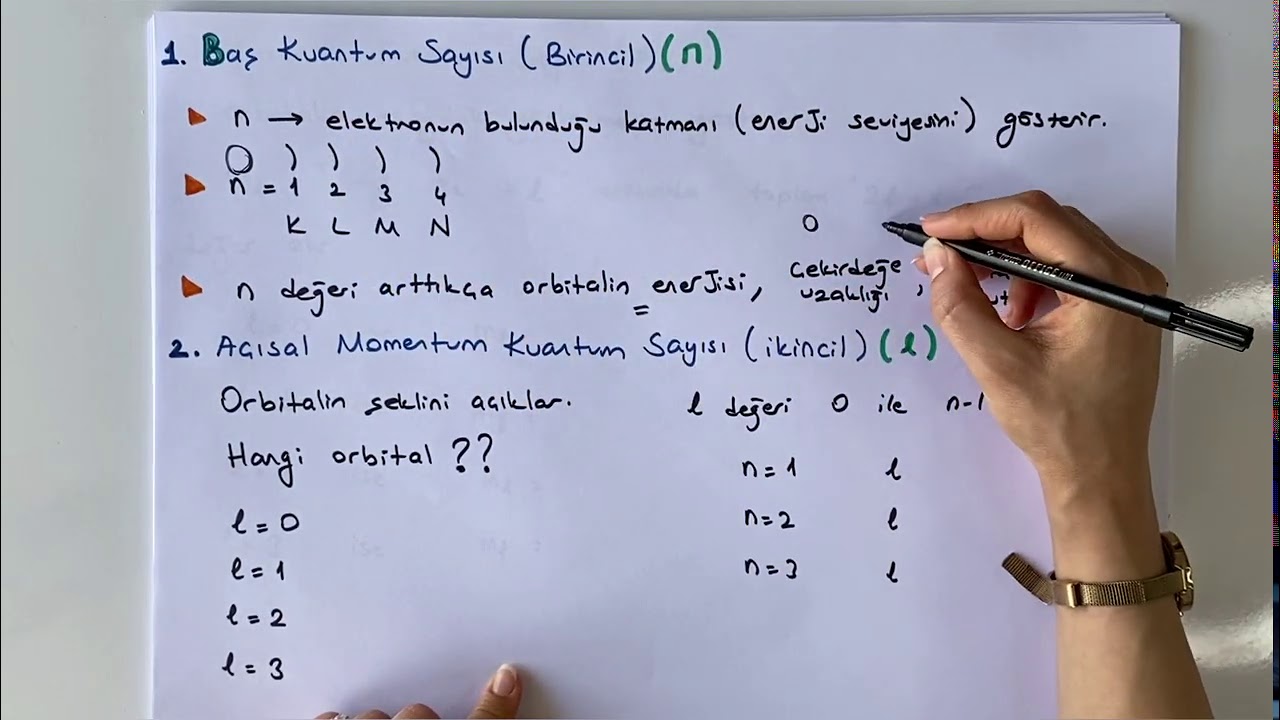 1. Baş Kuantum Sayısı (Birincil) (n)
n → elektronun bulunduğu katmanı (enerji seviyesini) gösterir.
O ) ) ) )
n = 1 2 3 4
K L M N
O
n değeri arttıkça orbitalin enerjisi, çekirdeğe uzaklığı,
2. Açısal Momentum Kuantum Sayısı (ikincil) (l)
Orbitalin şeklini açıklar.
l değeri 0 ile n-1
Hangi orbital ??
n = 1 l
l = 0
n = 2 l
l = 1
n = 3 l
l = 2
l = 3